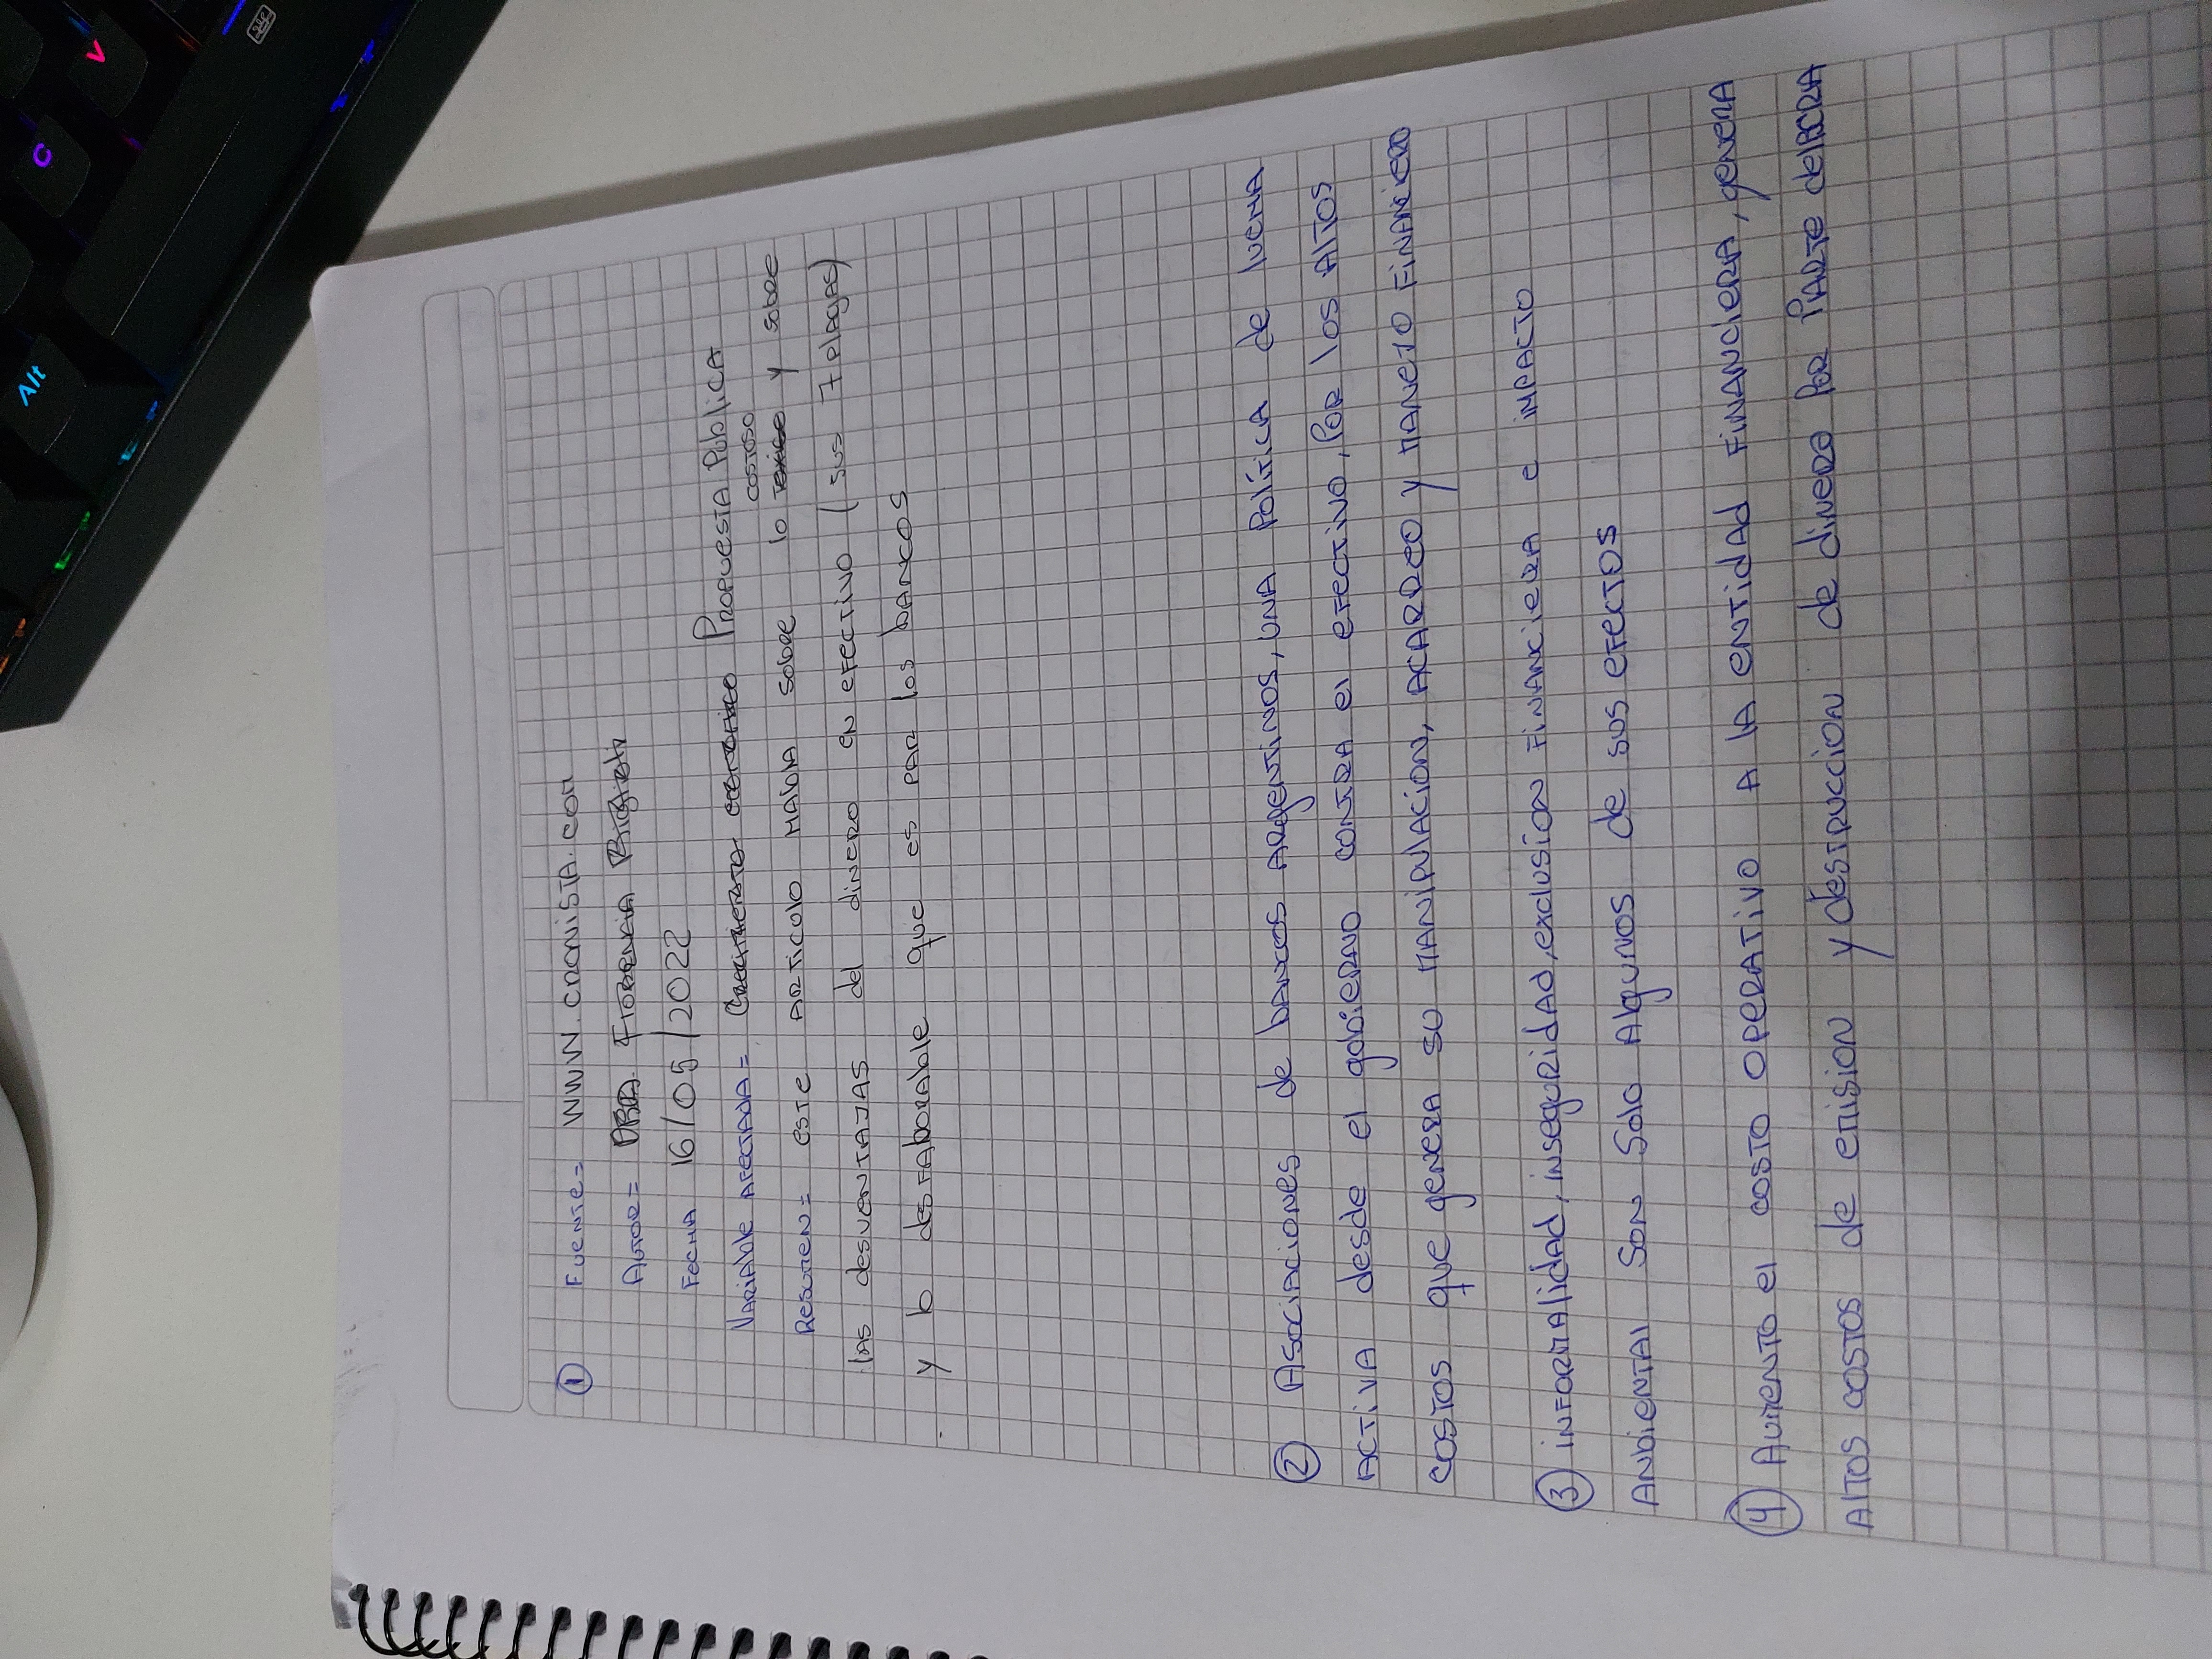 ① Fuente= WWW.cronista.com
Autor= DRA. Florencia
Fecha 16/05/2022
Variable Afectada= Propuesta Publica
costoso
Resumen= este articulo habla sobre lo y sobre
las desventajas del dinero en efectivo (sus 7 plagas)
y lo desfaborable que es par los bancos
② Asociaciones de bancos argentinos, una política de lucha
activa desde el gobierno contra el efectivo, por los altos
costos que genera su manipulacion, acarreo y manejo financiero
③ informalidad, inseguridad, exclusión financiera e impacto
ambiental son solo algunos de sus efectos
④ Aumento el costo operativo a la entidad financiera, genera
altos costos de emision y destruccion de dinero por parte del BCRA
V
C
Alt